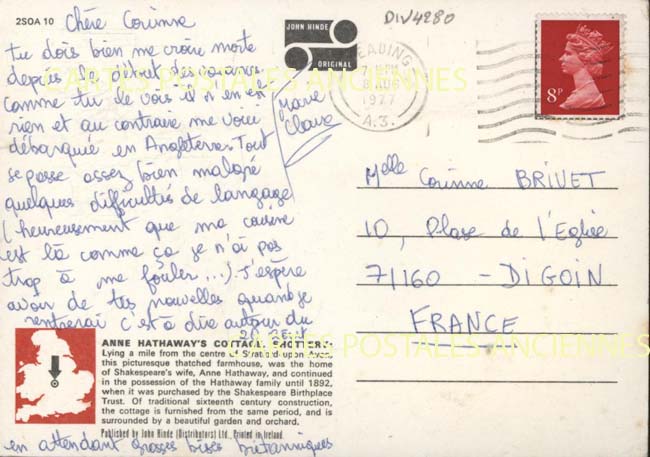 2SOA 10
Chère Corinne
tu dois bien me croire morte
depuis le début des vacances
comme tu le vois il n'en est
rien et au contraire me voici
débarquée en Angleterre. Tout
se passe assez bien malgré
quelques difficultés de langage
(heureusement que ma cousine
est là comme ça je n'ai pas
trop à me fouler...). J'espère
avoir de tes nouvelles quand je
rentrerai c'est à dire autour du
26 Août
en attendant grosses bises britanniques
Marie
Claire
JOHN HINDE
ORIGINAL
DIV4280
READING
8 AUG
1977
A.3.
8P
Melle Corinne BRIVET
10, Place de l'Eglise
71160 - DIGOIN
FRANCE
CARTES POSTALES ANCIENNES
CARTES POSTALES ANCIENNES
ANNE HATHAWAY'S COTTAGE, SHOTTERY.
Lying a mile from the centre of Stratford-upon-Avon,
this picturesque thatched farmhouse, was the home
of Shakespeare's wife, Anne Hathaway, and continued
in the possession of the Hathaway family until 1892,
when it was purchased by the Shakespeare Birthplace
Trust. Of traditional sixteenth century construction,
the cottage is furnished from the same period, and is
surrounded by a beautiful garden and orchard.
Published by John Hinde (Distributors) Ltd., Printed in Ireland.